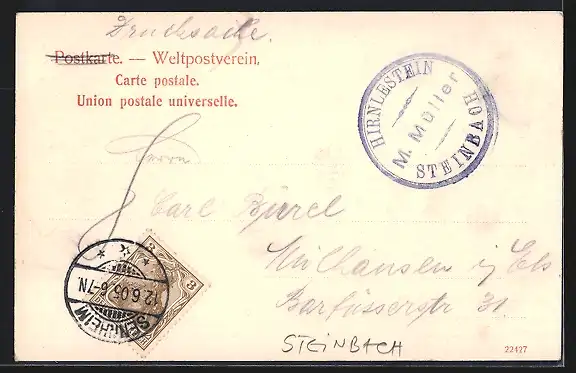 Drucksache.
Postkarte. — Weltpostverein.
Carte postale.
Union postale universelle.
HIRNLESTEIN
M. Möller
STEINBA HO
Herrn
Carl Bürel
Mülhausen i/ Els
Barfüsserstr 31.
3 3
SENNHEIM
12.6.05 6-7N.
STEINBACH
22427